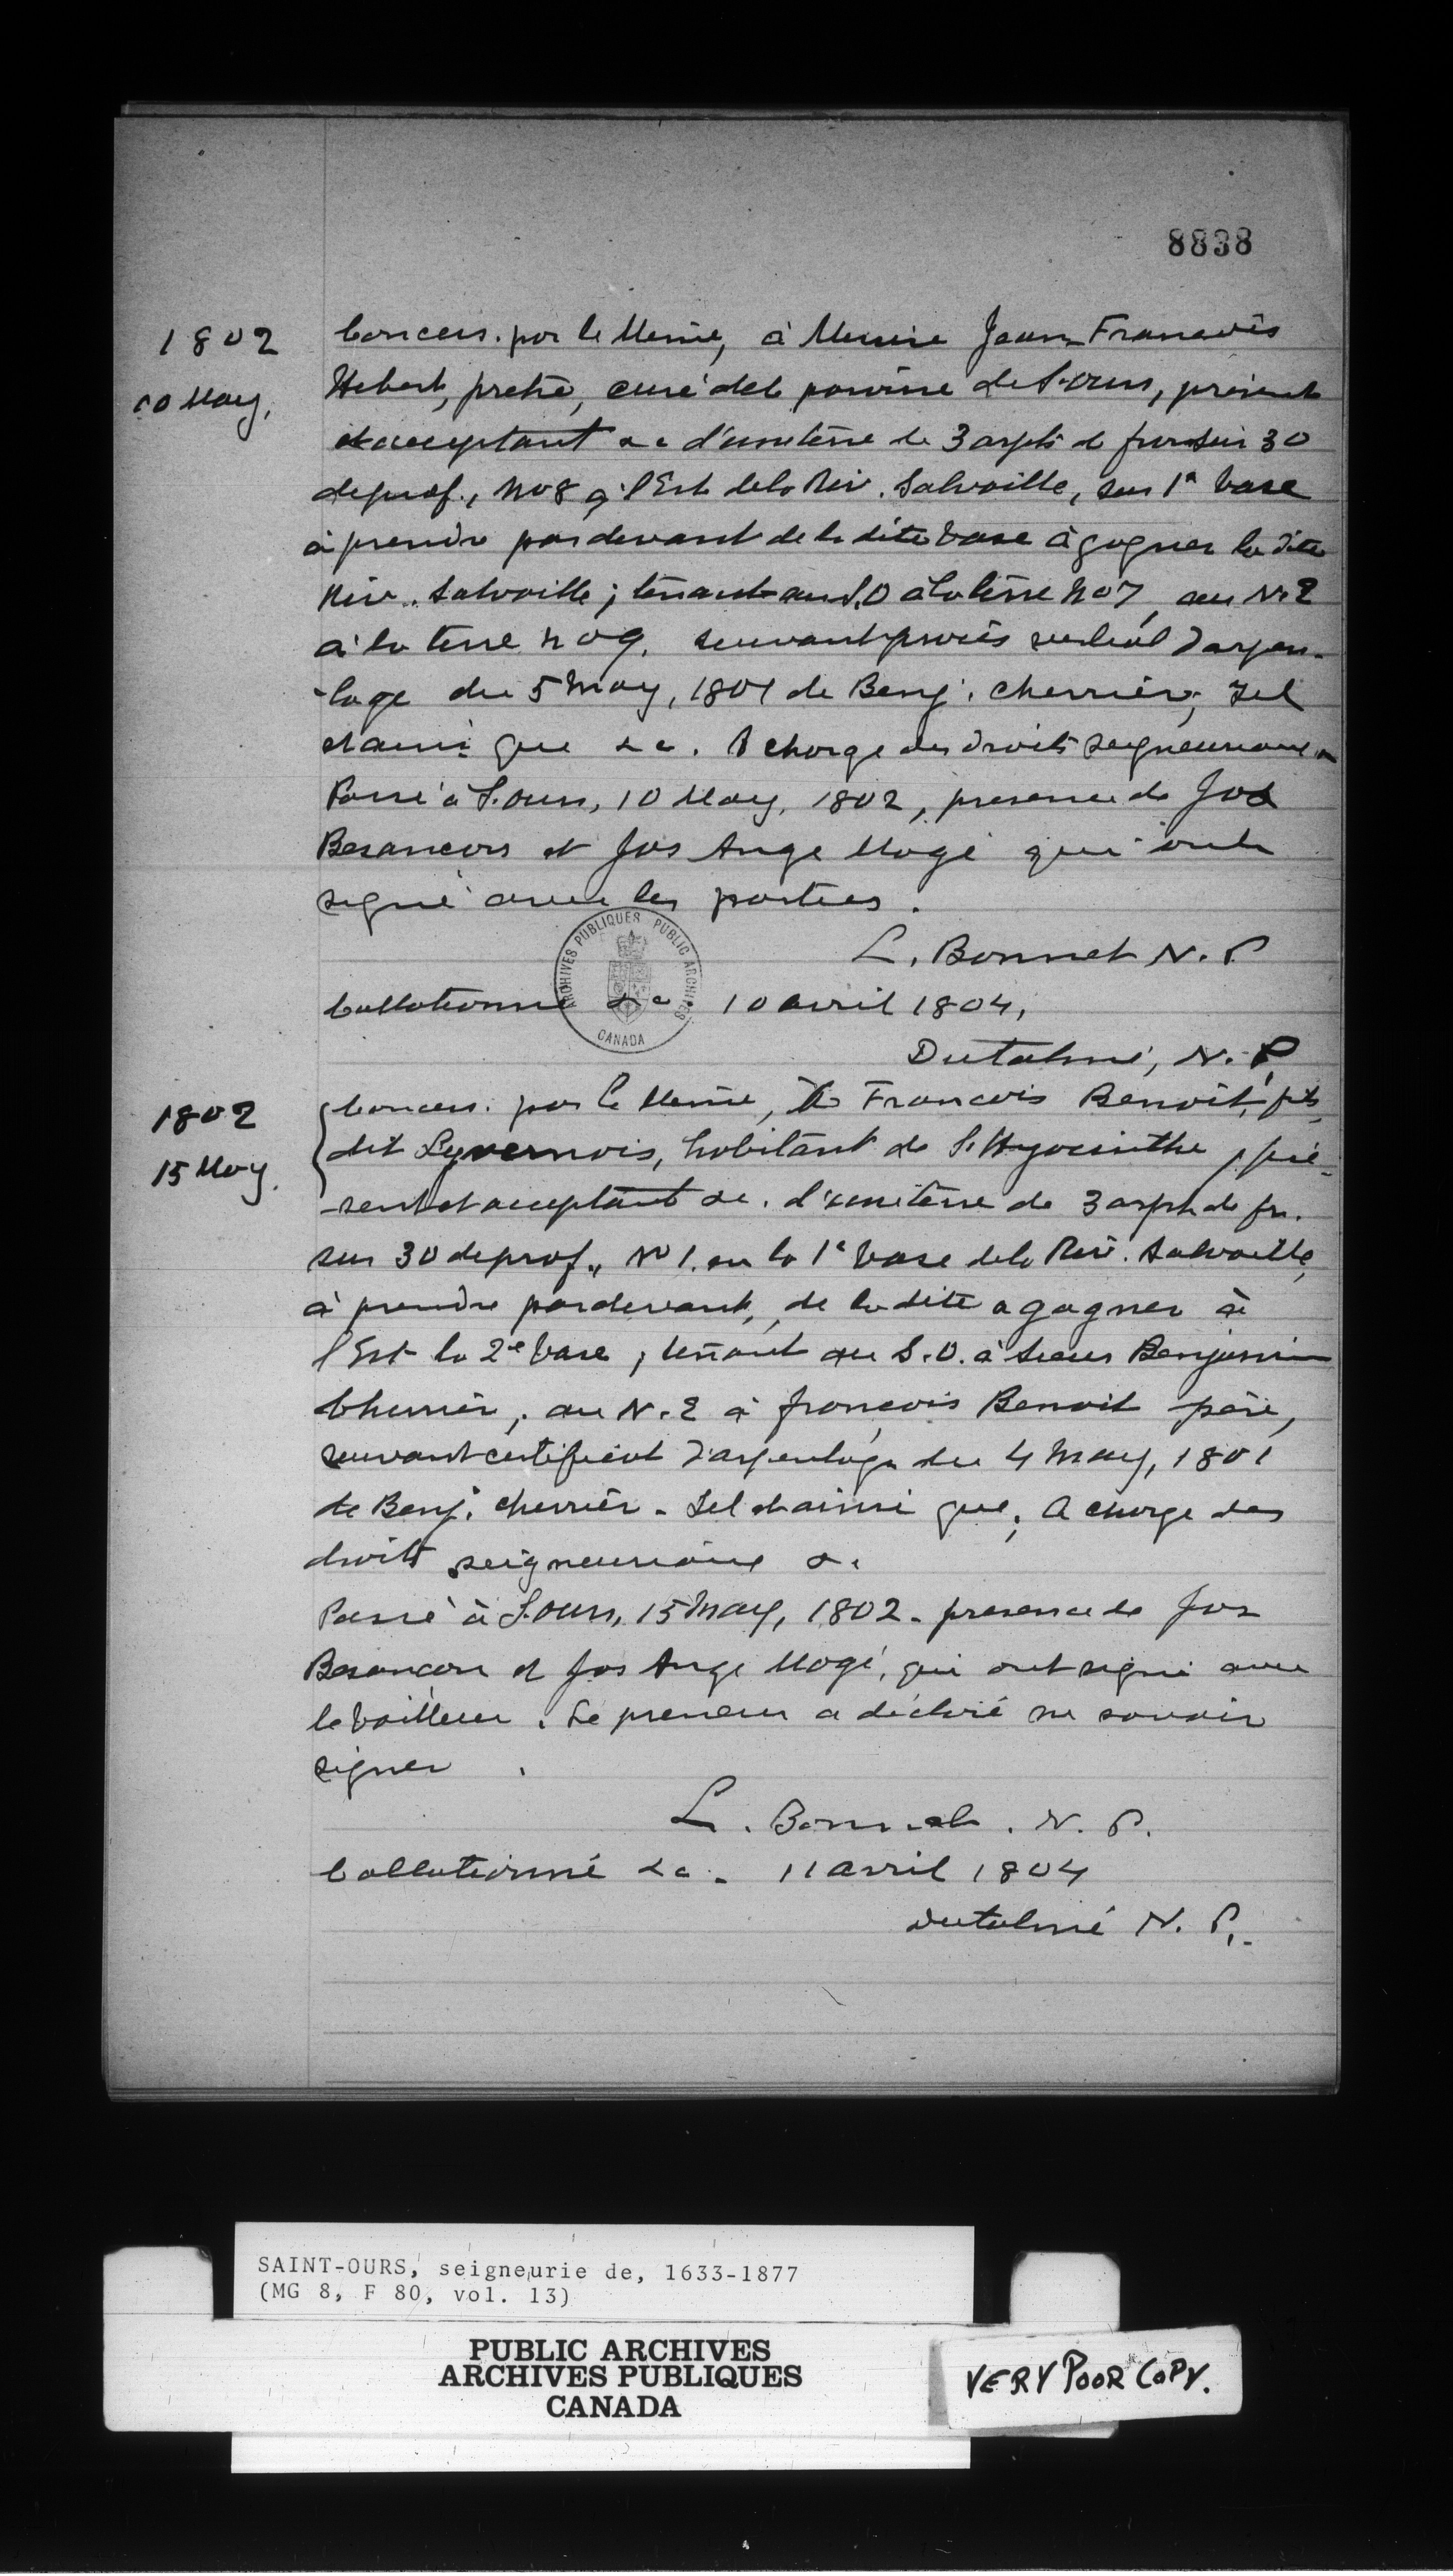 8838
1802
10 May,
Concess. par le Meme, à Messire Jean-Francois
Hebert, pretre, curé de la paroisse de S. Ours, présent
et acceptant &c d'une terre de 3 arpts de fr. sur 30
de prof., No 8 à l'Est de la Riv. Salvaille, sur 1e base
à prendre par devant de la dite base à gagner la dite
Riv. Salvaille; tenant au S.O à la terre No 7, au N.E
à la terre no 9. suivant procès verbal d'arpen-
-tage du 5 May, 1801 de Benj. Cherrier; Tel
et ainsi que &c. A charge des droits seigneuriaux
Passé à S. Ours, 10 May, 1802, presence de Jos
Besancon et Jos Ange Mogé qui ont
signé avec les parties.
L. Bonnet N.P.
Collationné &c 10 avril 1804,
Dutalmé, N.P
ARCHIVES PUBLIQUES PUBLIC ARCHIVES
CANADA
1802
15 May.
Concess. par le Meme, à Francois Benoit, fils,
dit Lyvernois, habitant de S. Hyacinthe, pré-
-sent et acceptant &c. d'une terre de 3 arpts de fr.
sur 30 de prof., No 1. sur la 1e base de la Riv. Salvaille,
à prendre par devant, de la dite a gagner à
l'Est la 2e base; tenant au S.O. à Sieur Benjamin
Cherrier, au N.E à françois Benoit père,
suivant certificat d'arpentage du 4 May, 1801
de Benj. Cherrier. Tel et ainsi que, A charge des
droits seigneuriaux &c
Passé à S. Ours, 15 May, 1802. presence de Jos
Besancon et Jos Ange Mogé, qui ont signé avec
le bailleur. Le preneur a déclaré ne savoir
signer.
L. Bonnet. N.P.
Collationné &c. 11 avril 1804
Dutalmé N.P.
SAINT-OURS, seigneurie de, 1633-1877
(MG 8, F 80, vol. 13)
PUBLIC ARCHIVES
ARCHIVES PUBLIQUES
CANADA
VERY POOR COPY.